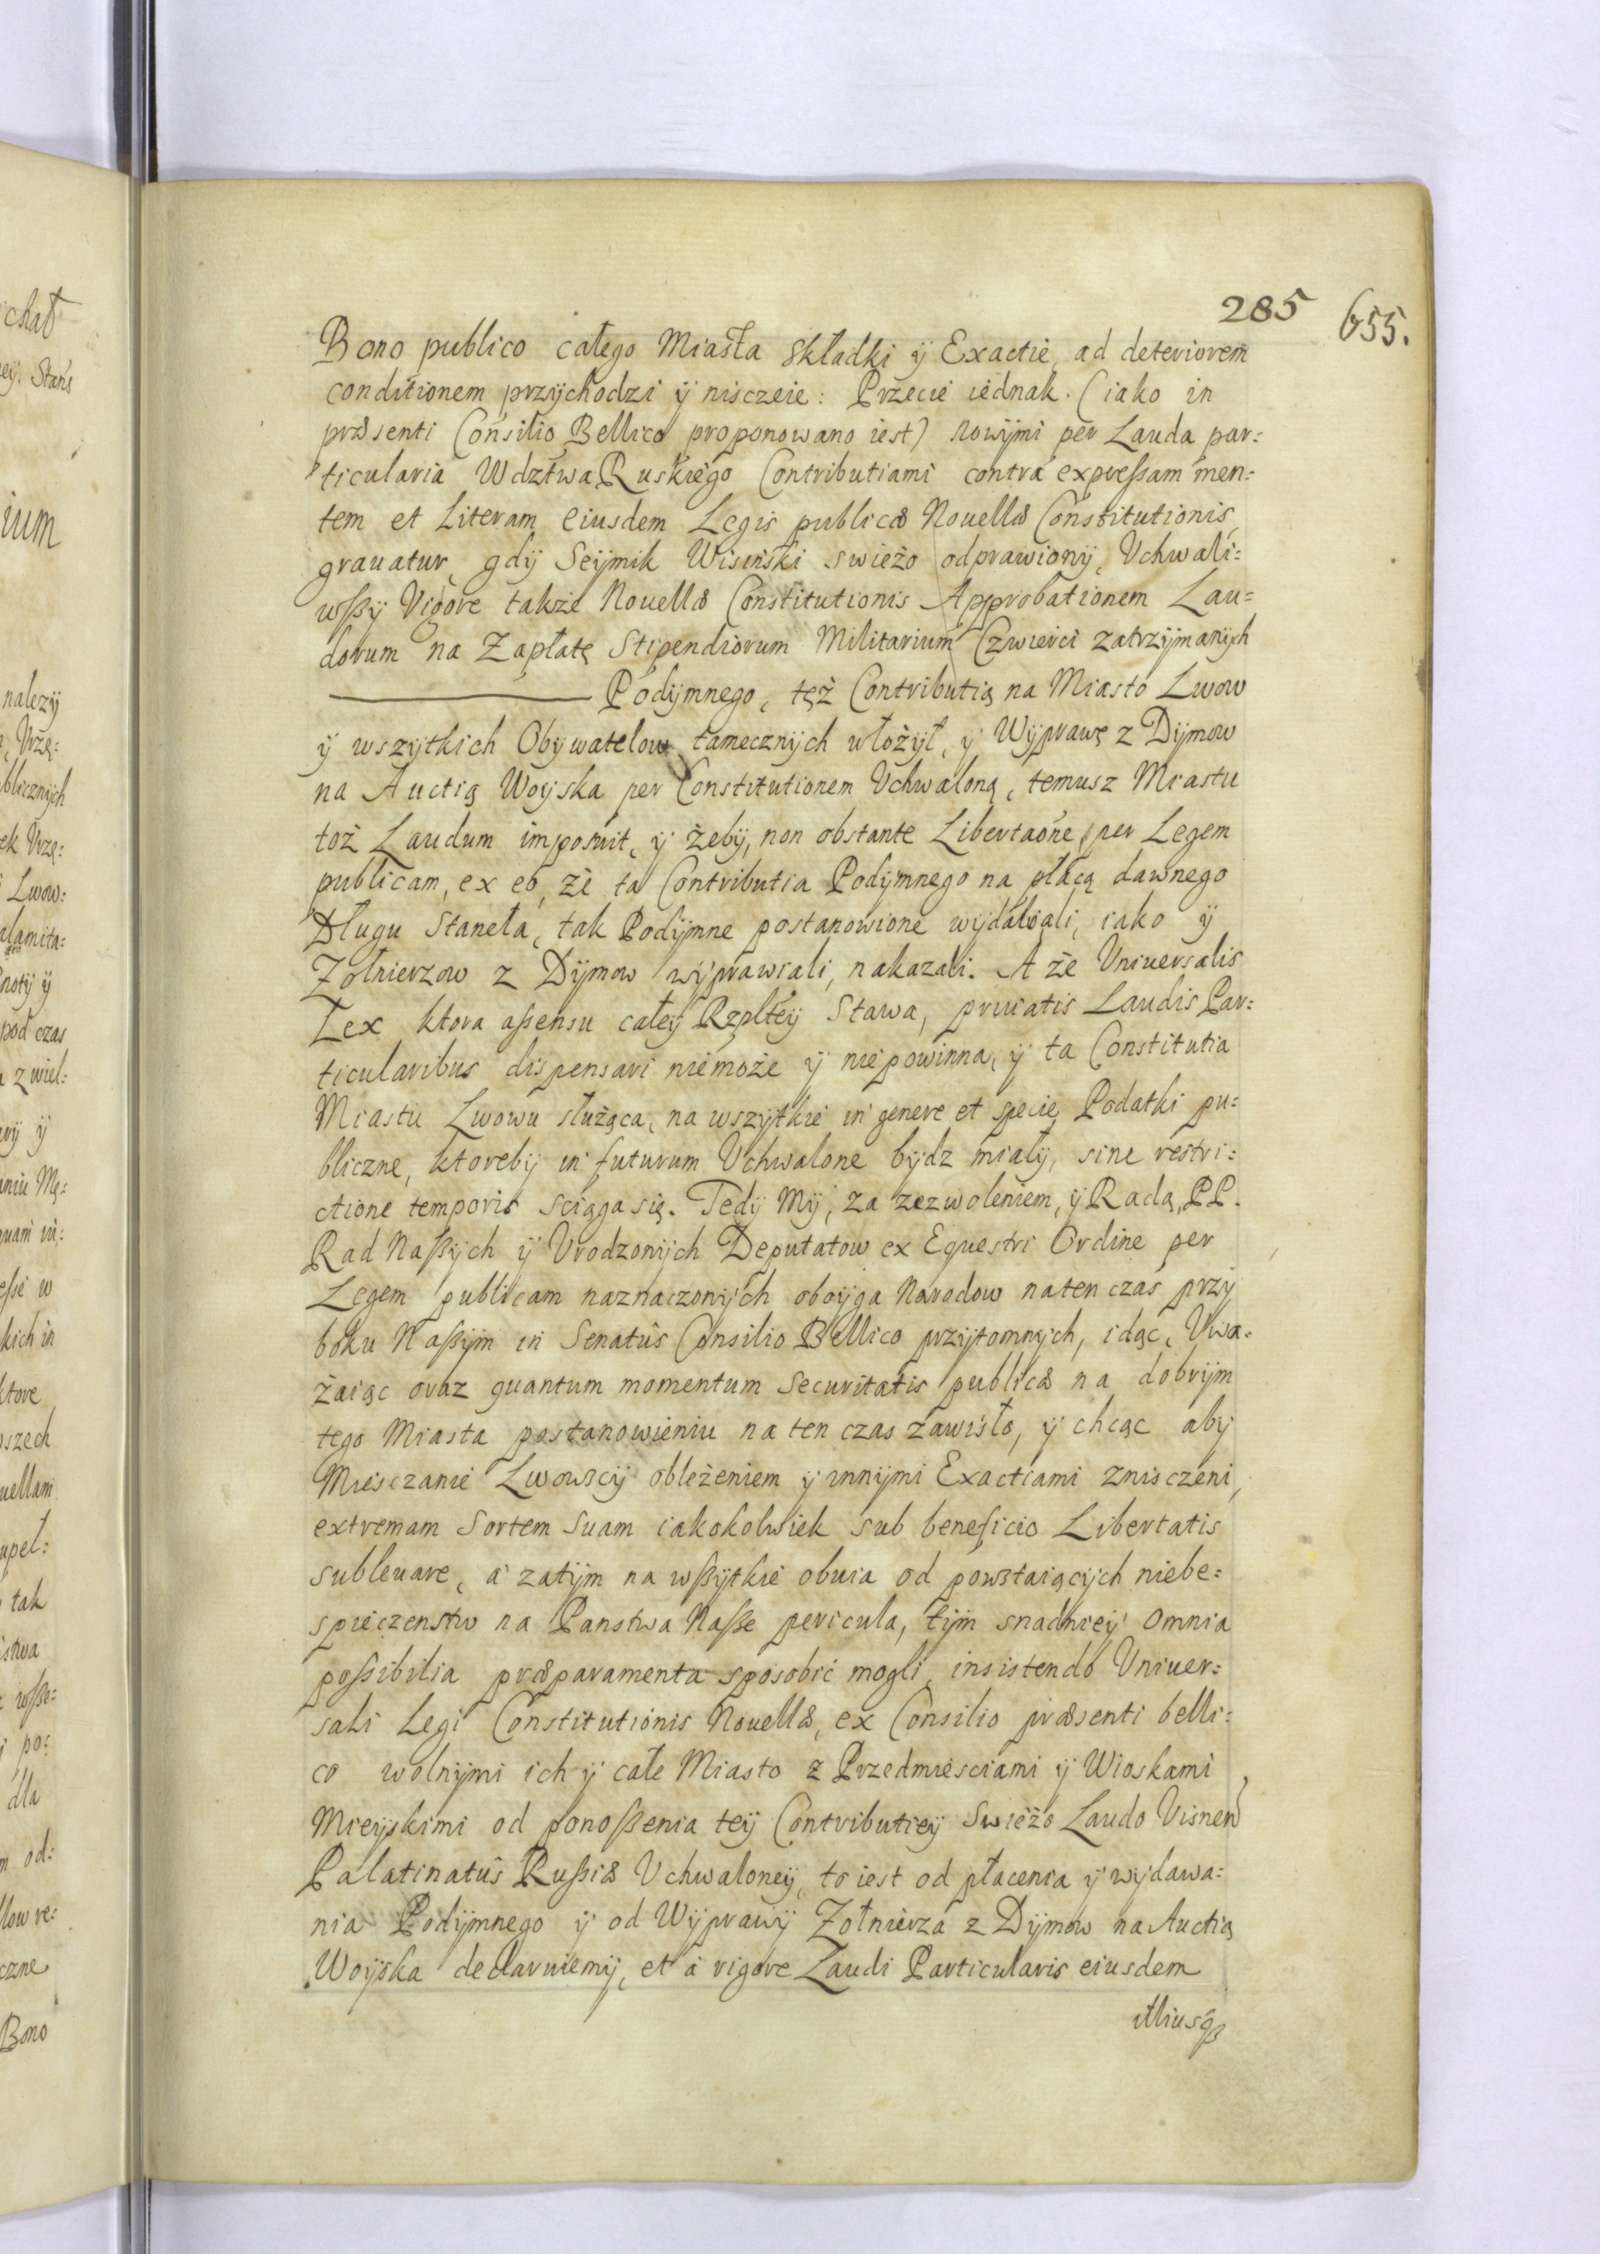 285 655.
Bono publico całego Miasta składki ÿ Exactie, ad deteriorem
conditionem przychodzi ÿ nisczeie: Przecie iednak (iako in
præsenti Consilio Bellico proponowano iest) nowÿmi per Lauda par:
ticularia Wdztwa Ruskiego Contributiami contra expreßam men:
tem et Literam eiusdem Legis publicæ Nouellæ Constitutionis,
grauatur, gdÿ Seÿmik Wisinski swieżo odprawionÿ, Vchwali:
wßÿ Vigore także Nouellæ Constitutionis Approbationem Lau:
dorum na Zapłatę Stipendiorum Militarium Czwierci zatrzÿmanÿch
Podÿmnego, tęż Contributią na Miasto Lwow
ÿ wszytkich Obywatelow tamecznÿch włożÿł, ÿ Wÿprawę z Dÿmow
na Auctią Woÿska per Constitutionem Vchwaloną, temusz Miastu
toż Laudum imposuit, ÿ żebÿ, non obstante Libertaõne, per Legem
publicam, ex eo, że ta Contributia Podÿmnego na płacą dawnego
Długu Stanęła, tak Podÿmne postanowione wÿdawali, iako ÿ
Zołnierzow z Dÿmow wÿprawiali, nakazali. A że Vniuersalis
Lex ktora aßensu całeÿ Rzpłteÿ Stawa, priuatis Laudis Par:
ticularibus dispensari niemoże ÿ niepowinna, ÿ ta Constitutia
Miastu Lwowu służąca, na wszytkie in genere et specie Podatki pu:
bliczne, ktorebÿ in futurum Vchwalone bÿdz miałÿ, sine restri:
ctione temporis sciąga się. Tedÿ Mÿ, za zezwoleniem, ÿ Radą, PP.
Rad Naßÿch ÿ Vrodzonÿch Deputatow ex Equestri Ordine per
Legem publicam naznaczonÿch oboÿga Narodow naten czas przÿ
boku Naßÿm in Senatûs Consilio Bellico przÿtomnych, idąc, Vwa:
żaiąc oraz quantum momentum Securitatis publicæ na dobrÿm
tego Miasta postanowieniu na ten czas zawisło, ÿ chcąc abÿ
Miesczanie Lwowscÿ obleżeniem ÿ innÿmi Exactiami znisczeni,
extremam Sortem Suam iakokolwiek sub beneficio Libertatis
subleuare, a zatÿm na wßÿtkie obuia od powstaiącÿch niebe:
spieczenstw na Panstwa Naße pericula, tÿm snadnieÿ omnia
poßibilia præparamenta sposobić mogli, insistendo Vniuer:
sali Legi Constitutionis Nouellæ, ex Consilio præsenti belli:
co wolnÿmi ich ÿ całe Miasto z Przedmiesciami ÿ Wioskami
Mieÿskimi od ponoßenia teÿ Contributieÿ Swieżo Laudo Visnen̂
Palatinatûs Rußiæ Vchwaloneÿ, to iest od płacenia ÿ wÿdawa:
nia Podÿmnego ÿ od Wÿprawÿ Zołnierza z Dÿmow na Auctią
Woÿska declaruiemÿ, et à rigore Laudi Particularis eiusdem
illiusqꝫ